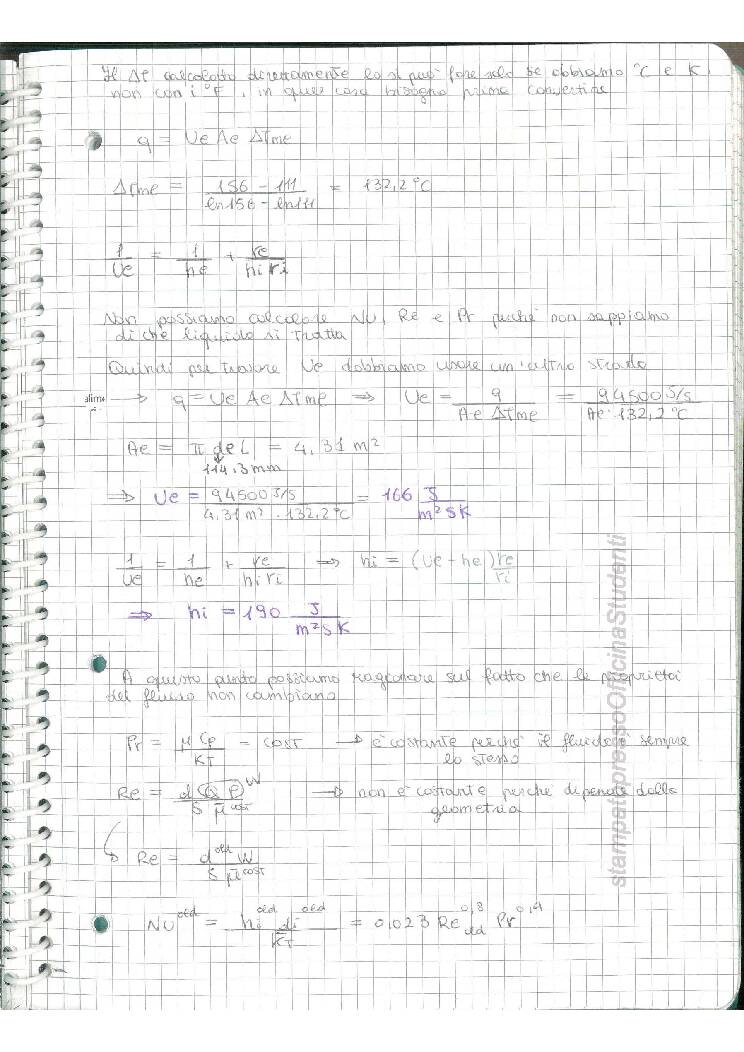 Il ΔT calcolato direttamente lo si può fare solo se abbiamo °C e K,
non con i °F, in quel caso bisogna prima convertire
q = Ue Ae ΔTme
ΔTme = 156 - 111 / ln156 - ln111 = 132,2 °C
1/Ue = 1/he + re/hi ri
Non possiamo calcolare Nu, Re e Pr perché non sappiamo
di che liquido si tratta
Quindi per trovare Ue dobbiamo usare un'altra strada
q = Ue Ae ΔTme ⇒ Ue = q / Ae ΔTme = 94500 J/s / Ae · 132,2 °C
Ae = π de L = 4,31 m²
114,3 mm
⇒ Ue = 94500 J/s / 4,31 m² · 132,2 °C = 166 J / m² s K
1/Ue = 1/he + re/hi ri ⇒ hi = (Ue - he) re/ri
⇒ hi = 190 J / m² s K
A questo punto possiamo ragionare sul fatto che le proprietà
del fluido non cambiano
Pr = μ Cp / KT = COST → è costante perché il fluido è sempre
lo stesso
Re = d Q ρ W / S μ cost → non è costante perché dipende dalla
geometria
Re = d old W / S μ cost
Nu old = hi old di old / KT = 0,023 Re old 0,8 Pr 0,4
stampatopressoOfficinaStudenti